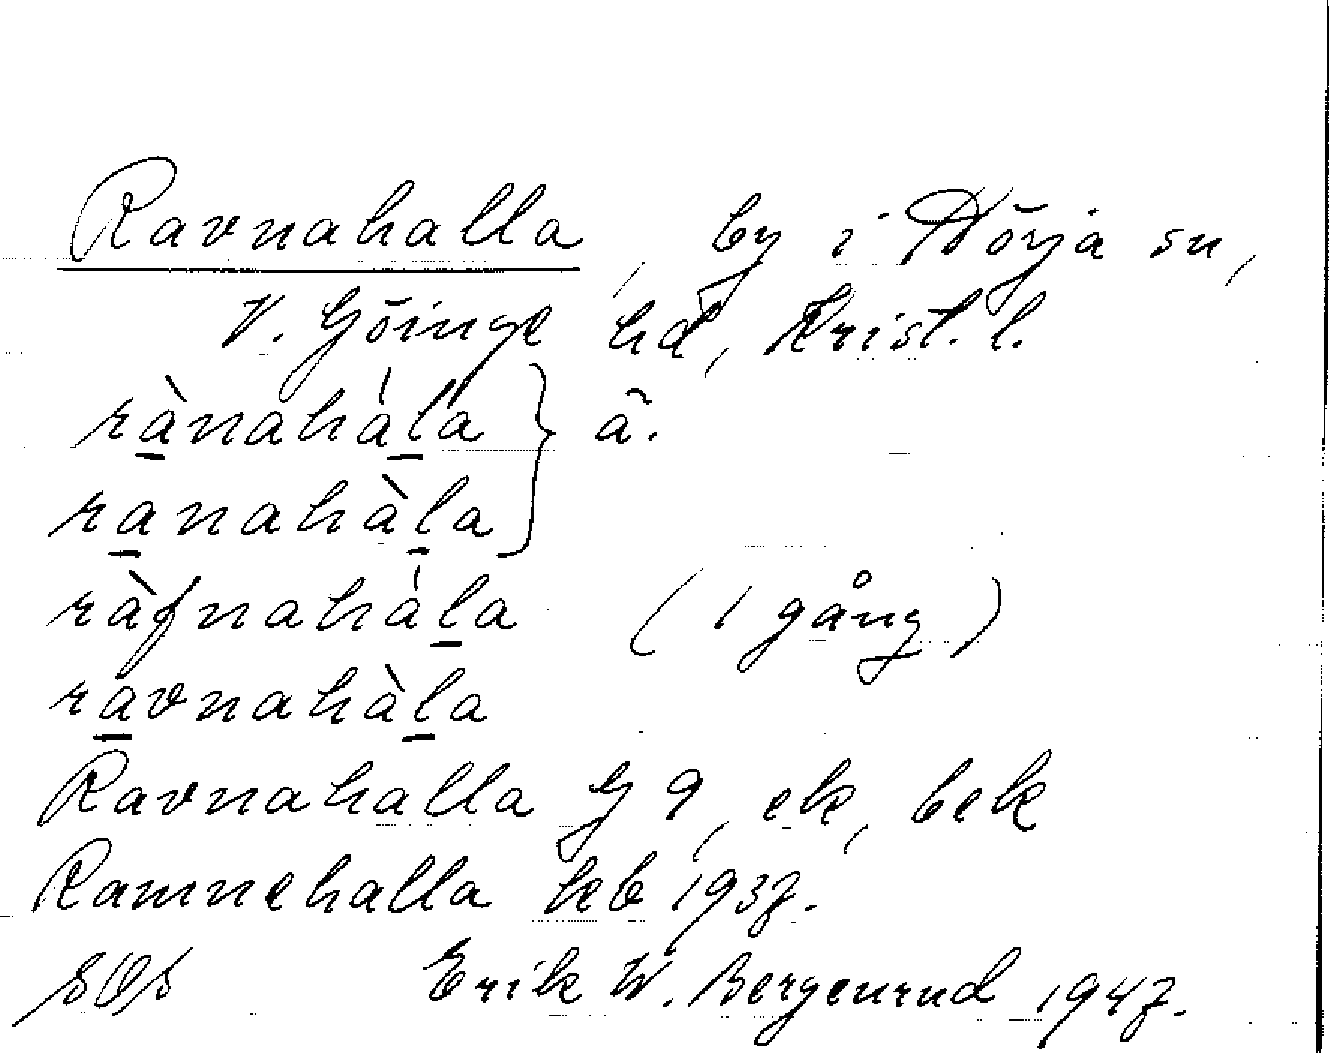 Ravnahalla, by i Nõrja sn,
V. Göinge hd, Krist. l.
rànahála } ã.
ranahàla
ràfnahála (1 gång)
ravnahàla
Ravnahalla G 9, ek, bek
Ramnehalla kb 1937.
SOS Erik W. Bergenrud 1947.